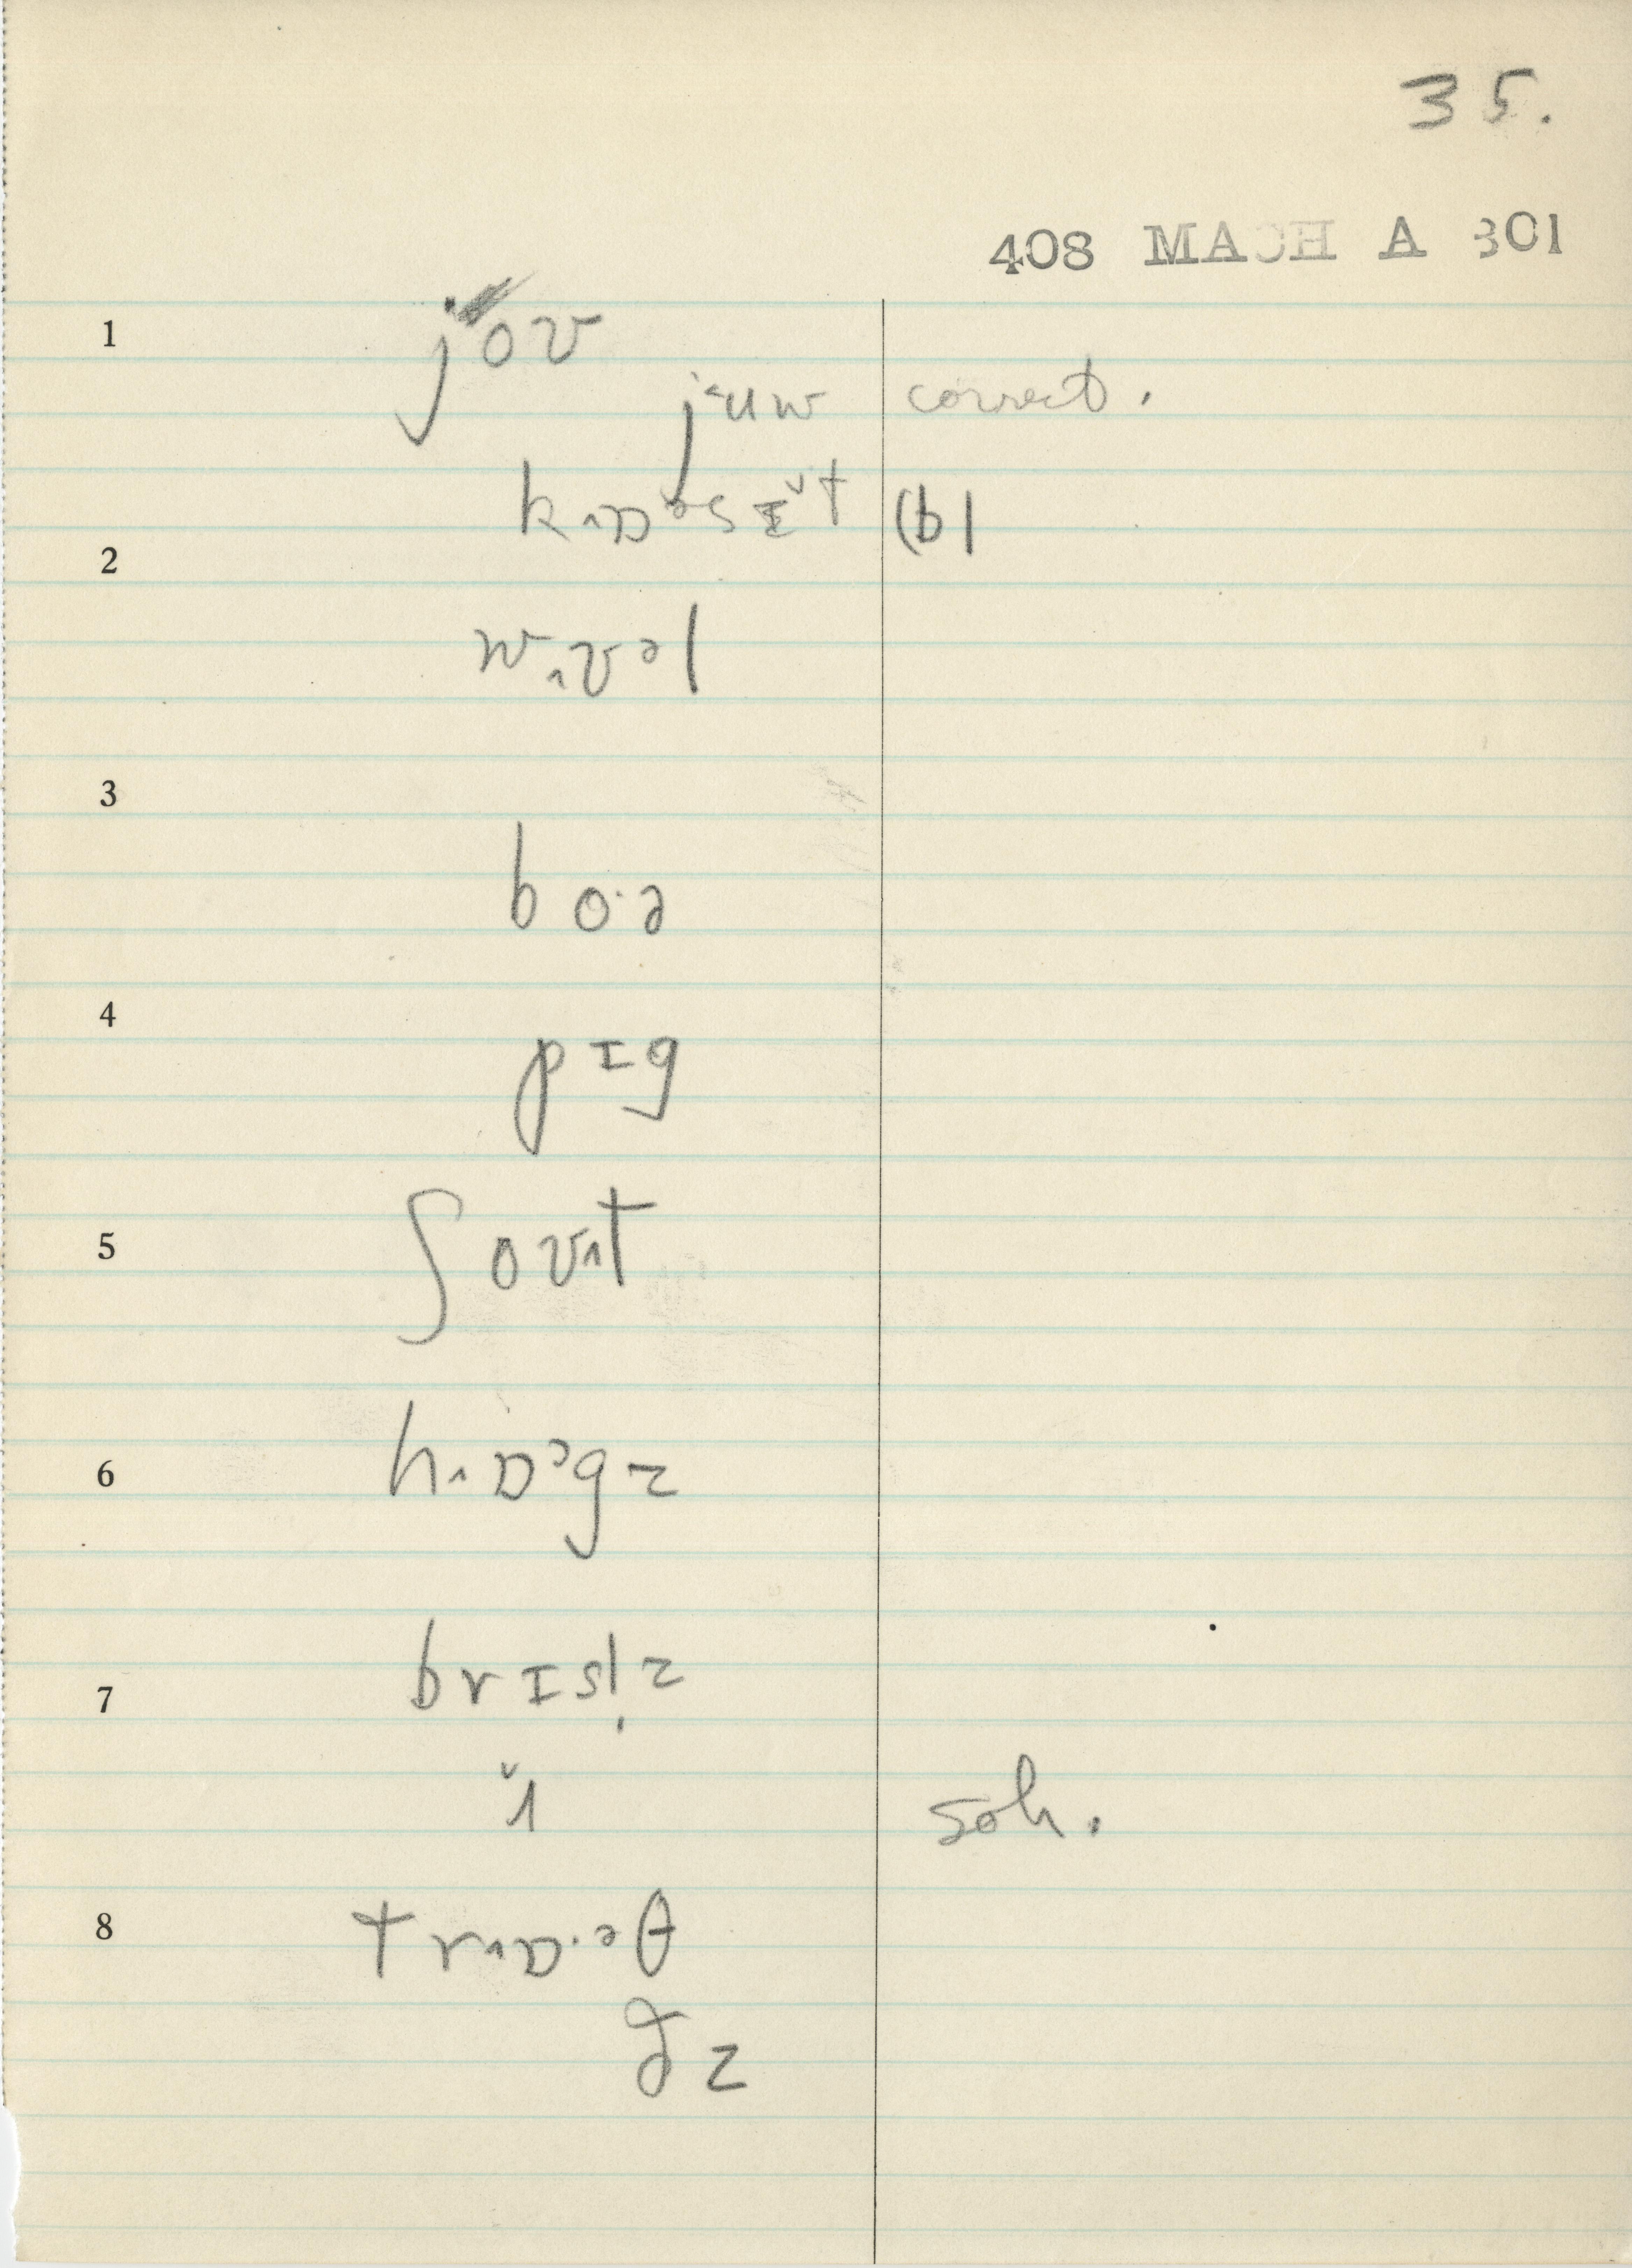 35.
408 MACH A 301
1 joʊ
j˂uw correct.
k˰ɒᵊsɪ̌t (b)
2
w˰ʊᵊl
3
bo·ə
4
pɪg
5 ʃoʊ˰t
6 h˰ɒᵊgz
7 brɪsl̩z
ˇ˰ soh.
8 tr˰ɒ·ᵊθ
ðz